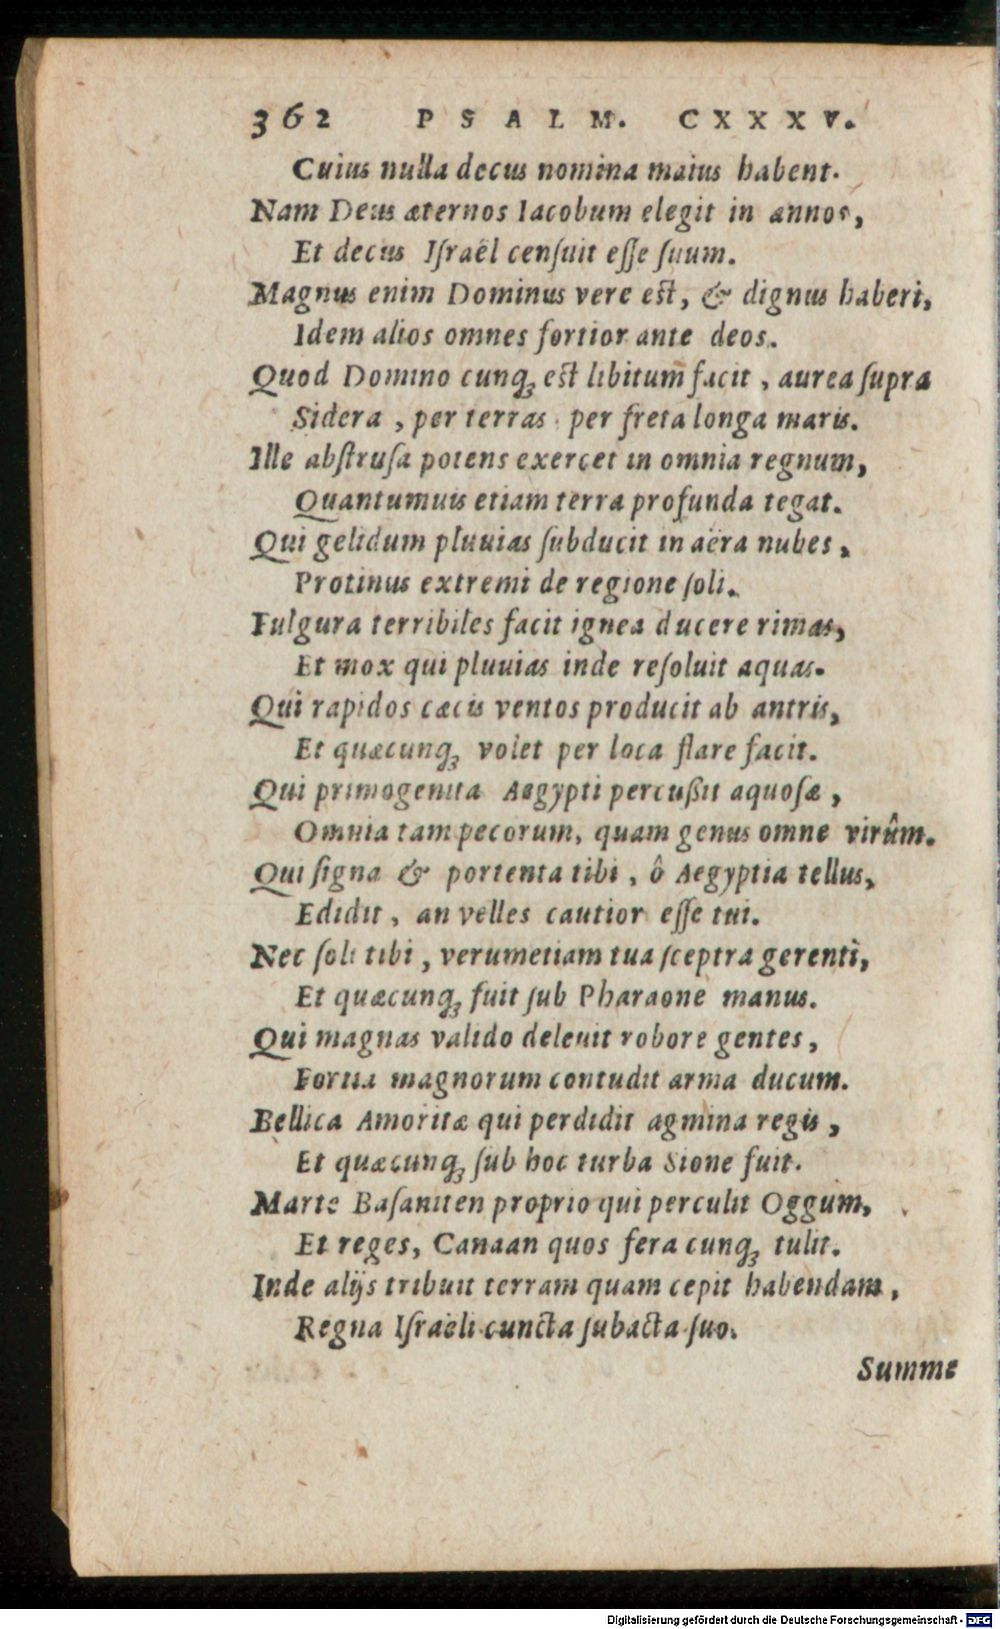 362 PSALM. CXXXV.
Cuius nulla decus nomina maius habent.
Nam Deus æternos Iacobum elegit in annos,
Et decus Iſraël cenſuit eſſe ſuum.
Magnus enim Dominus vere est, & dignus haberi,
Idem alios omnes fortior ante deos.
Quod Domino cunqꝫ est libitum facit, aurea ſupra
Sidera, per terras per freta longa maris.
Ille abſtruſa potens exercet in omnia regnum,
Quantumuis etiam terra profunda tegat.
Qui gelidum pluuias ſubducit in aëra nubes,
Protinus extremi de regione ſoli.
Fulgura terribiles facit ignea ducere rimas,
Et mox qui pluuias inde reſoluit aquas.
Qui rapidos cæcis ventos producit ab antris,
Et quæcunqꝫ volet per loca flare facit.
Qui primogenita Aegypti percußit aquoſæ,
Omnia tam pecorum, quam genus omne virûm.
Qui ſigna & portenta tibi, ô Aegyptia tellus,
Edidit, an velles cautior eſſe tui.
Nec ſoli tibi, verumetiam tua ſceptra gerenti,
Et quæcunqꝫ fuit ſub Pharaone manus.
Qui magnas valido deleuit robore gentes,
Fortia magnorum contudit arma ducum.
Bellica Amoritæ qui perdidit agmina regis,
Et quæcunqꝫ ſub hoc turba Sione fuit.
Marte Baſaniten proprio qui perculit Oggum,
Et reges, Canaan quos fera cunqꝫ tulit.
Inde alijs tribuit terram quam cepit habendam,
Regna Iſraëli cuncta ſubacta ſuo.
Summe
Digitalisierung gefördert durch die Deutsche Forschungsgemeinschaft - DFG